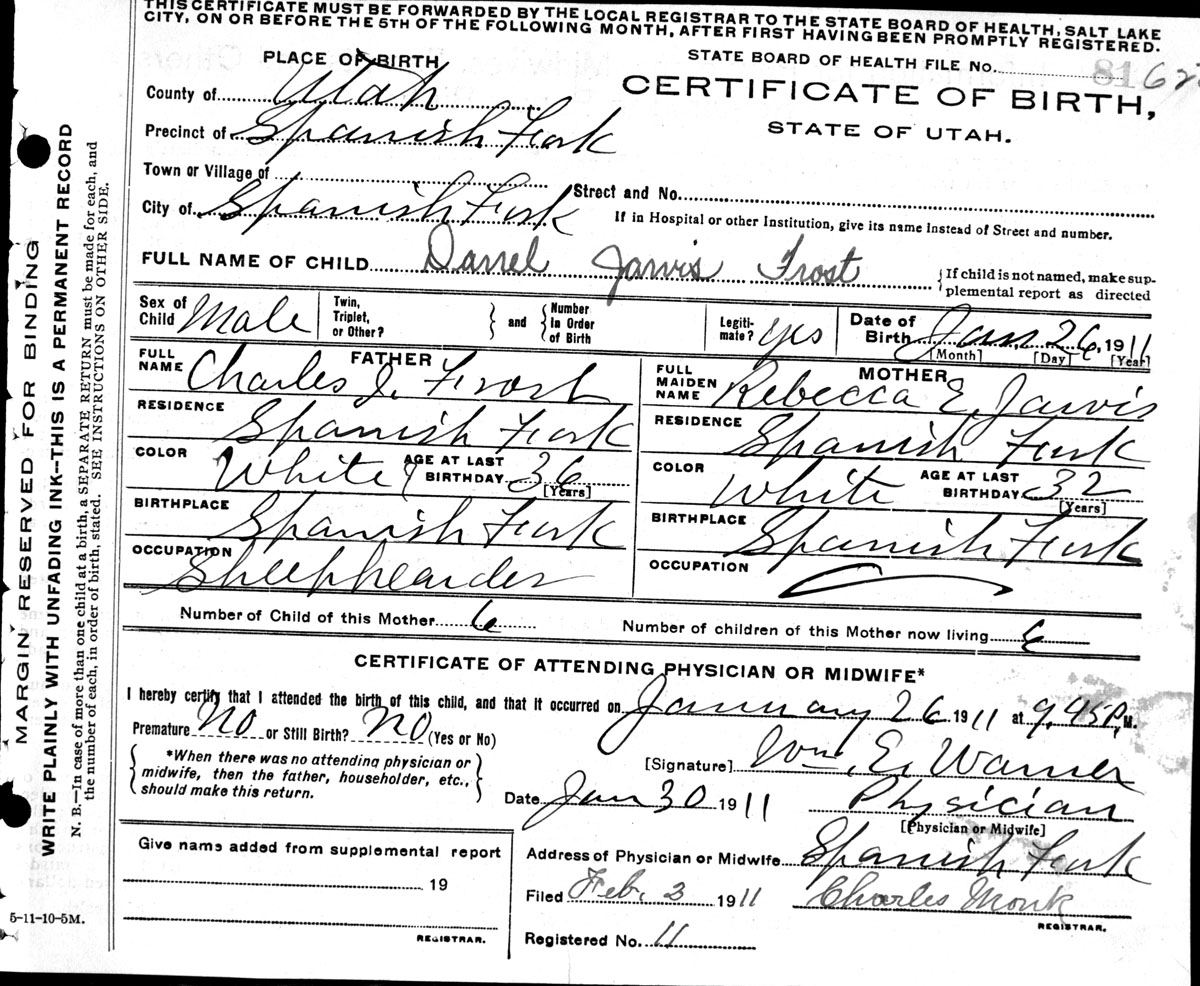 THIS CERTIFICATE MUST BE FORWARDED BY THE LOCAL REGISTRAR TO THE STATE BOARD OF HEALTH, SALT LAKE
CITY, ON OR BEFORE THE 5TH OF THE FOLLOWING MONTH, AFTER FIRST HAVING BEEN PROMPTLY REGISTERED.
PLACE OF BIRTH
STATE BOARD OF HEALTH FILE No. 81
County of Utah
CERTIFICATE OF BIRTH,
Precinct of Spanish Fork
STATE OF UTAH.
Town or Village of
Street and No.
City of Spanish Fork
If in Hospital or other Institution, give its name Instead of Street and number.
FULL NAME OF CHILD Darrel Jarvis Frost
If child is not named, make sup-
plemental report as directed
Sex of Child Male
Twin, Triplet, or Other?
and
Number In Order of Birth
Legiti-mate? yes
Date of Birth Jan. 26, 1911
[Month] [Day] [Year]
FATHER
FULL NAME Charles J. Frost
RESIDENCE Spanish Fork
COLOR White AGE AT LAST BIRTHDAY 36
[Years]
BIRTHPLACE Spanish Fork
OCCUPATION Sheephearder
MOTHER
FULL MAIDEN NAME Rebecca E. Jarvis
RESIDENCE Spanish Fork
COLOR White AGE AT LAST BIRTHDAY 32
[Years]
BIRTHPLACE Spanish Fork
OCCUPATION
Number of Child of this Mother 6
Number of children of this Mother now living 6
CERTIFICATE OF ATTENDING PHYSICIAN OR MIDWIFE*
I hereby certify that I attended the birth of this child, and that it occurred on January 26 1911 at 9,45 P, M.
Premature No or Still Birth? No (Yes or No)
*When there was no attending physician or
midwife, then the father, householder, etc.,
should make this return.
[Signature] Wm. E. Warner
Date Jan 30 1911
Physician
[Physician or Midwife]
Give name added from supplemental report
19
REGISTRAR.
Address of Physician or Midwife Spanish Fork
Filed Feb. 3 1911 Charles Monk
REGISTRAR.
Registered No. 11
5-11-10-5M.
MARGIN RESERVED FOR BINDING
WRITE PLAINLY WITH UNFADING INK—THIS IS A PERMANENT RECORD
N. B.—In case of more than one child at a birth, a SEPARATE RETURN must be made for each, and
the number of each, in order of birth, stated. SEE INSTRUCTION ON OTHER SIDE.